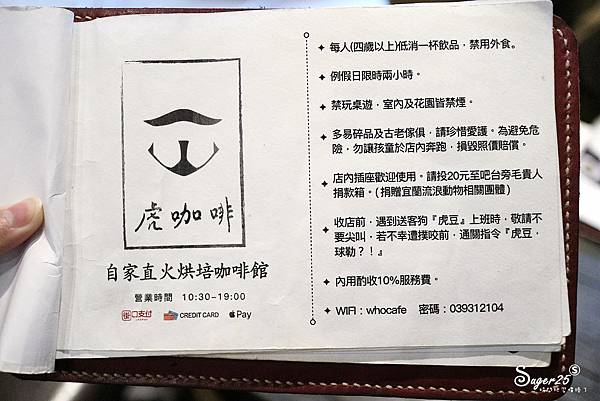 虎咖啡
自家直火烘培咖啡館
營業時間 10:30-19:00
街口支付
CREDIT CARD
Pay
每人(四歲以上)低消一杯飲品,禁用外食。
例假日限時兩小時。
禁玩桌遊,室內及花園皆禁煙。
多易碎品及古老傢俱,請珍惜愛護。為避免危
險,勿讓孩童於店內奔跑,損毀照價賠償。
店內插座歡迎使用。請投20元至吧台旁毛貴人
捐款箱。(捐贈宜蘭流浪動物相關團體)
收店前,遇到送客狗『虎豆』上班時,敬請不
要尖叫,若不幸遭撲咬前,通關指令『虎豆,
球勒?!』
內用酌收10%服務費。
WIFI:whocafe 密碼:039312104
Suger25